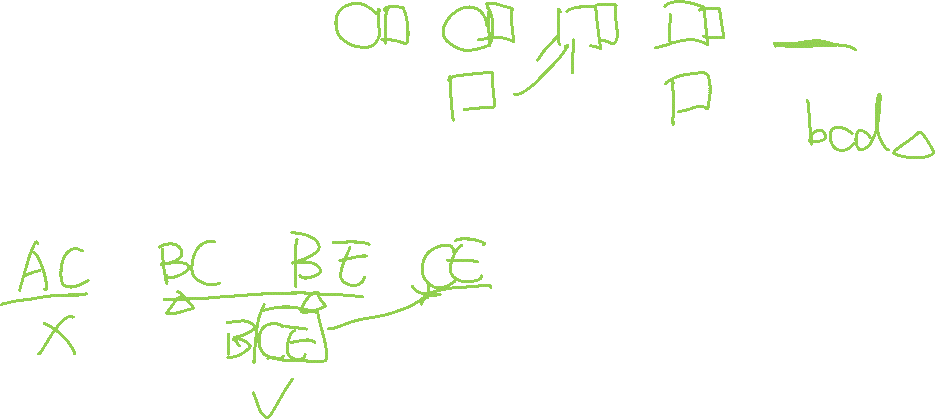 AC BC BE CE
X BCE